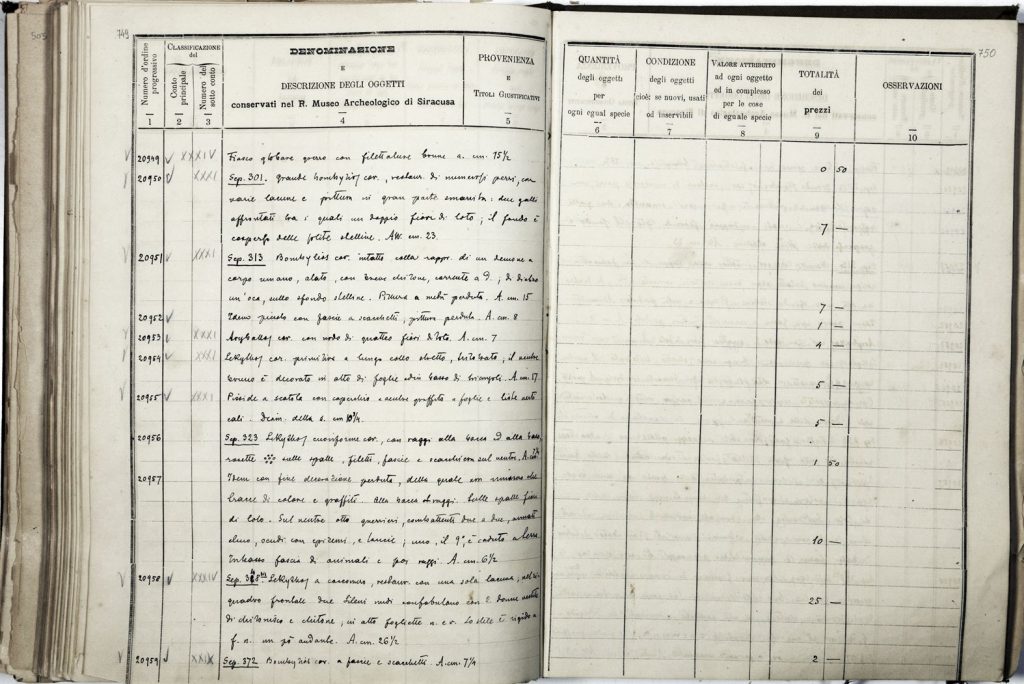 505
749
Numero d'ordine progressivo
CLASSIFICAZIONE del
Conto principale
Numero del sotto conto
DENOMINAZIONE
E
DESCRIZIONE DEGLI OGGETTI
conservati nel R. Museo Archeologico di Siracusa
PROVENIENZA
E
TITOLI GIUSTIFICATIVI
1 2 3 4 5
20949 XXXIV Fiasco globare grezzo con filettature brune a. cm. 15½
20950 XXXI Sep. 301. grande bombylios cor., restaur. di numerosi pezzi, con
varie lacune e pittura in gran parte smarrita: due galli
affrontati tra i quali un doppio fiore di loto; il fondo è
cosperso delle solite stelline. Alt. cm. 23.
20951 XXXI Sep. 313 Bombylios cor. intatto colla rappr. di un demone a
corpo umano, alato, con breve chitone, corrente a D.; di dietro
un'oca, sullo sfondo stelline. Pittura a metà perduta. A. cm. 15
20952 Idem piccolo con fascie a scacchetti, pittura perduta. A. cm. 8
20953 XXXI Aryballos cor. con nodo di quattro fiori di loto. A. cm. 7
20954 XXXI Lekythos cor. primitiva a lungo collo stretto, il ventre
è decorato in alto di foglie ed in basso di triangoli. A. cm. 17
20955 XXXI Pisside a scatola con coperchio e ventre graffito a foglie e liste verti
cali. Diam. della s. cm 10¼
20956 Sep. 323 Lekythos cuoriforme cor., con raggi alla bocca ed alla base,
rosette sulle spalle, filetti, fascie e scacchiera sul ventre. A. cm.
20957 Idem con fine decorazione perduta, della quale non rimasero che
tracce di colore e graffiti. Alla bocca raggi. Sulle spalle fiori
di loto. Sul ventre otto guerrieri, combattenti due a due, armati
elmo, scudi con episemi, e lancie; uno, il 9°, è caduto a terra.
In basso fascia di animali e poi raggi. A. cm. 6½
20958 XXXIV Sep. Lekythos a restaur. con una sola lacuna; nel
quadro frontale due Sileni nudi confabulano con 2 donne vestite
di chitonisco e chitone; in alto fogliette n. e r. Lo stile è rigido a
f. n. un pò andante. A. cm. 26½
20959 XXIX Sep. 372 Bombylios cor. a fascie e scacchetti. A. cm. 7¼
750
QUANTITÀ
degli oggetti
per
ogni egual specie
CONDIZIONE
degli oggetti
cioè: se nuovi, usati
od inservibili
VALORE ATTRIBUITO
ad ogni oggetto
ed in complesso
per le cose
di eguale specie
TOTALITÀ
dei
prezzi
OSSERVAZIONI
6 7 8 9 10
0 50
7 —
7 —
1 —
4 —
5 —
5 —
1 50
10 —
25 —
2 —